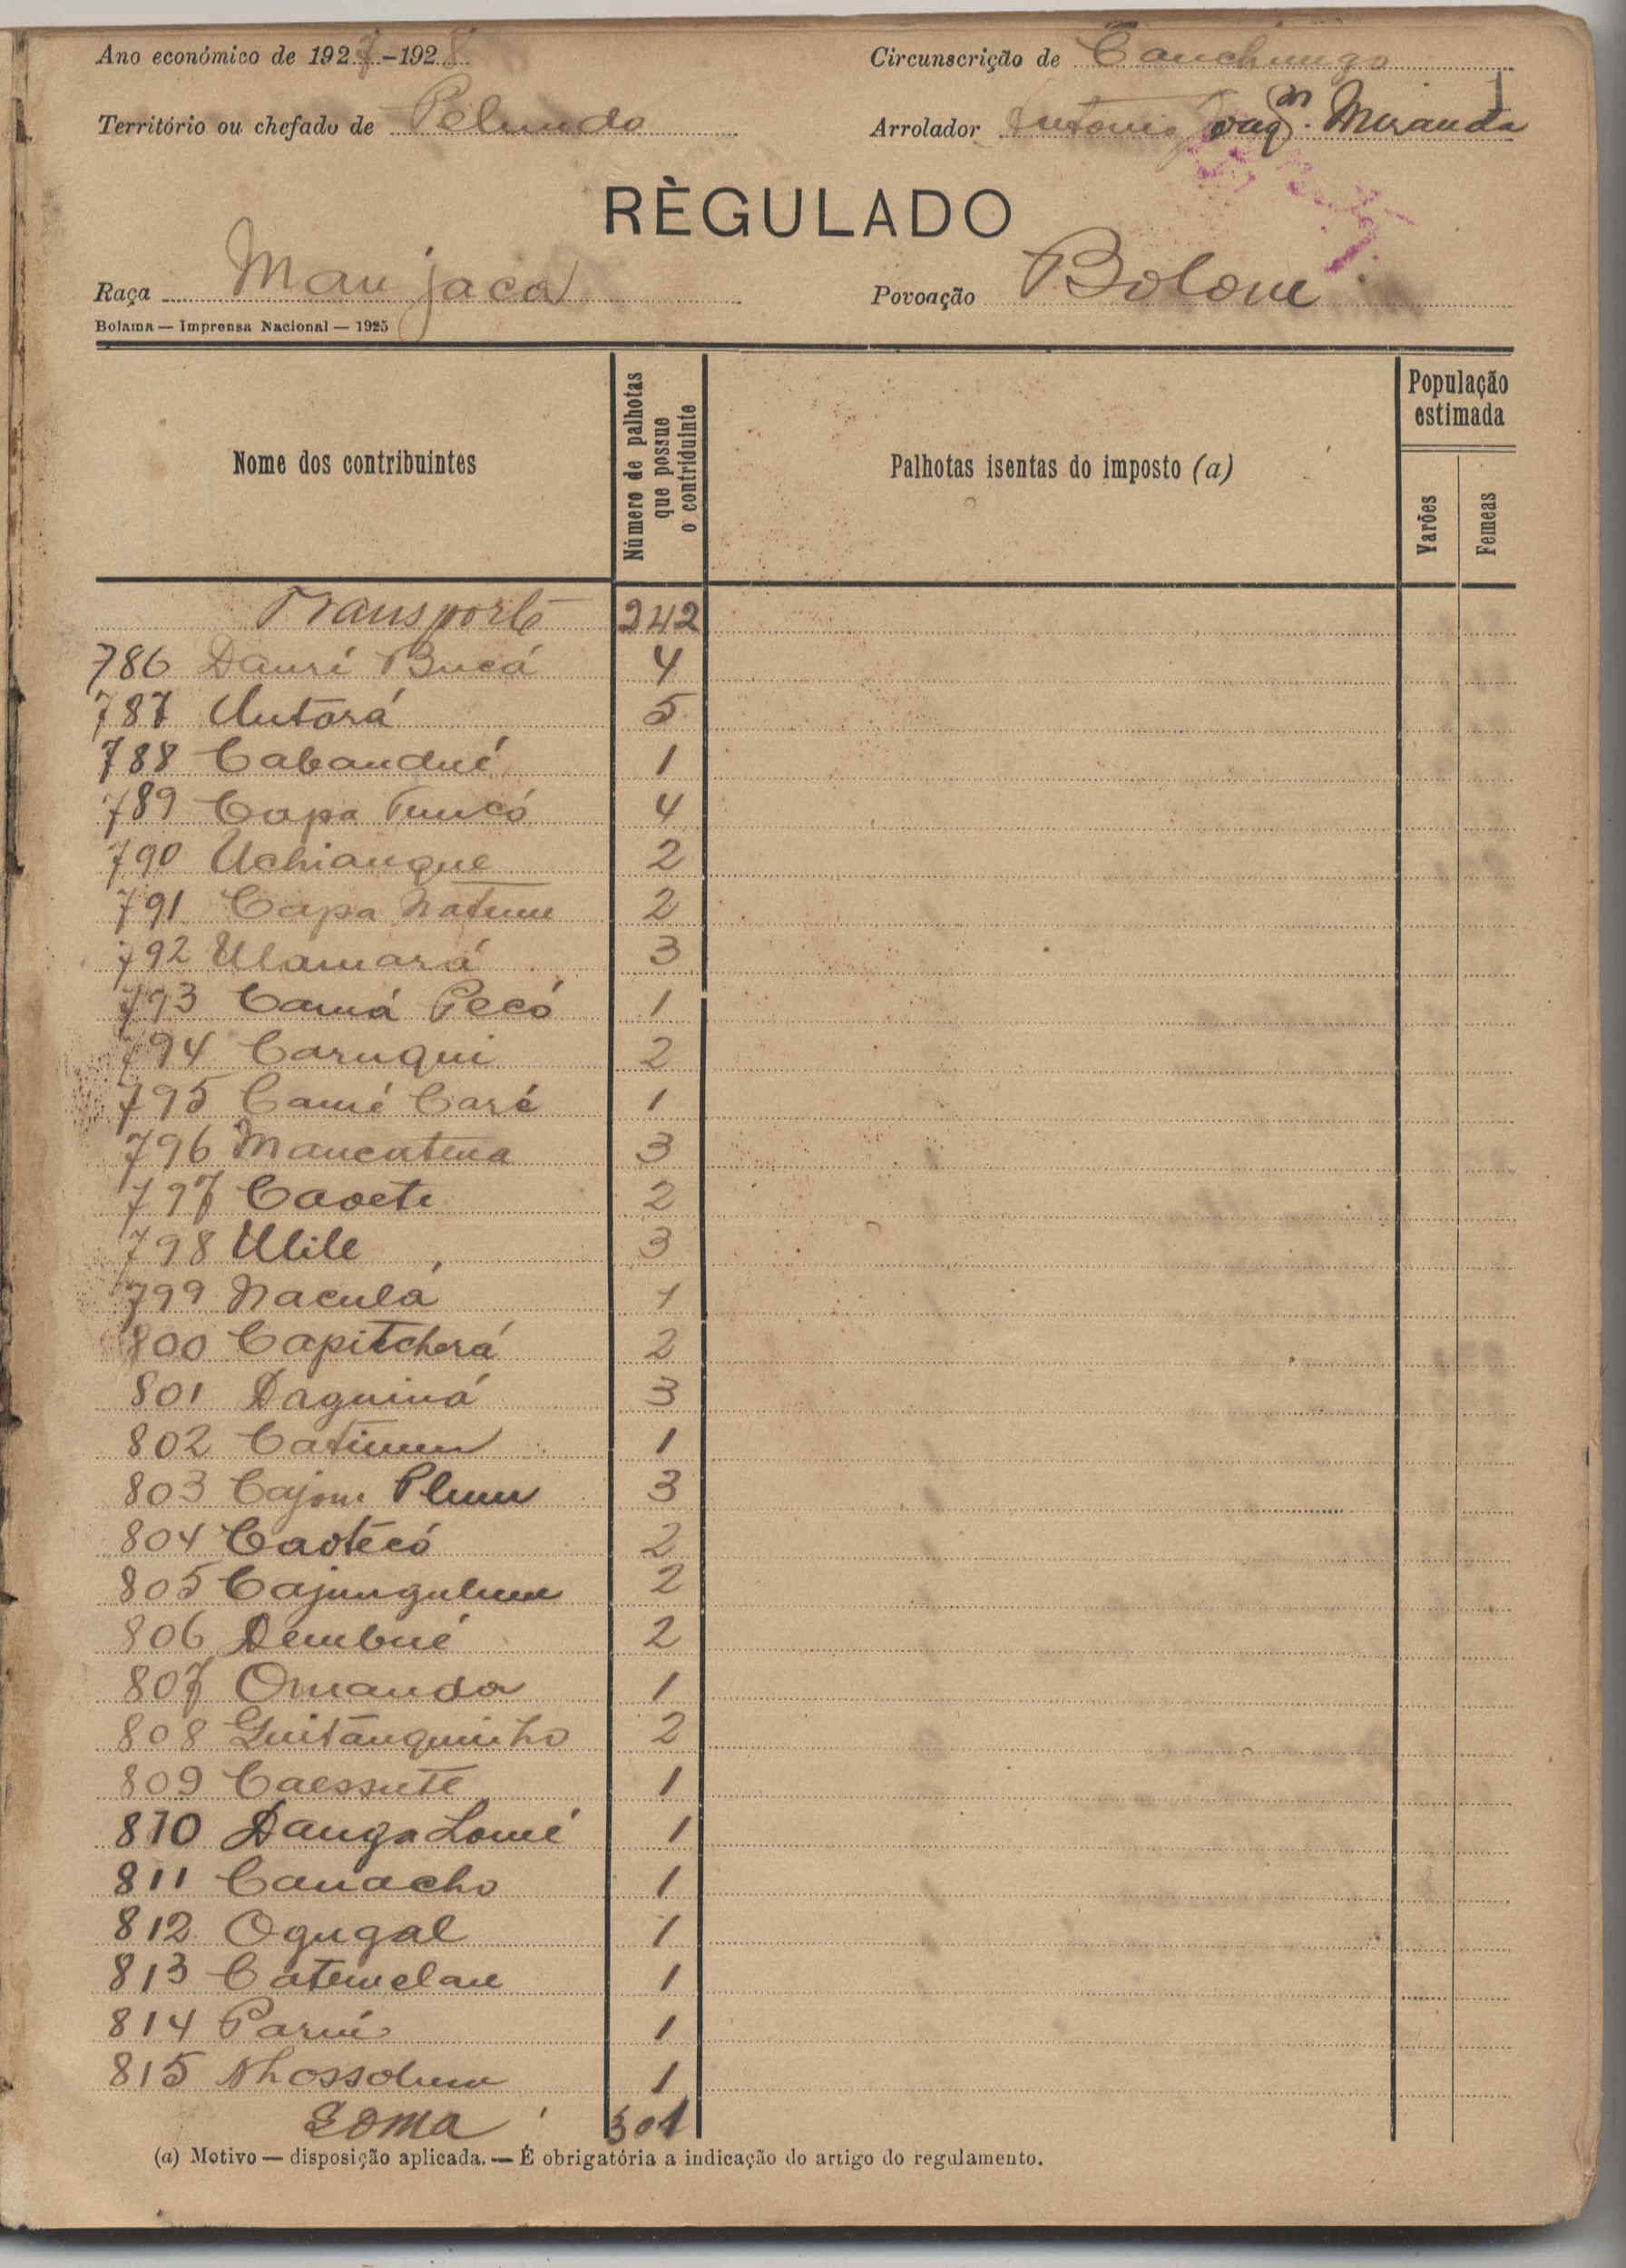 Ano económico de 1927-1928
Circunscrição de Canchungo
Território ou chefado de Pelundo
Arrolador António Joaqm. Miranda
RÈGULADO
Raça Manjaca
Povoação Bolom
Bolama — Imprensa Nacional — 1925
Nome dos contribuintes
Número de palhotas que possue o contriduinte
Palhotas isentas do imposto (a)
População estimada
Varões
Femeas
Transporte 242
786 Dauri Bucá 4
787 Untorá 5
788 Cabandué 1
789 Capa Tuncó 4
790 Uchiangue 2
791 Capa Natum 2
792 Ulamará 3
793 Camá Pecó 1
794 Caruqui 2
795 Camé Caré 1
796 Mancatena 3
797 Caoete 2
798 Ulile 3
799 Naculá 1
800 Capitcherá 2
801 Daguiná 3
802 Catimum 1
803 Cajom Plum 3
804 Caotecó 2
805 Cajungulum 2
806 Dembué 2
807 Omanda 1
808 Guitanquinho 2
809 Caessute 1
810 Danga Lomé 1
811 Canacho 1
812 Ogugal 1
813 Catemelam 1
814 Parui 1
815 Nhossolum 1
Soma 301
(a) Motivo — disposição aplicada. — É obrigatória a indicação do artigo do regulamento.